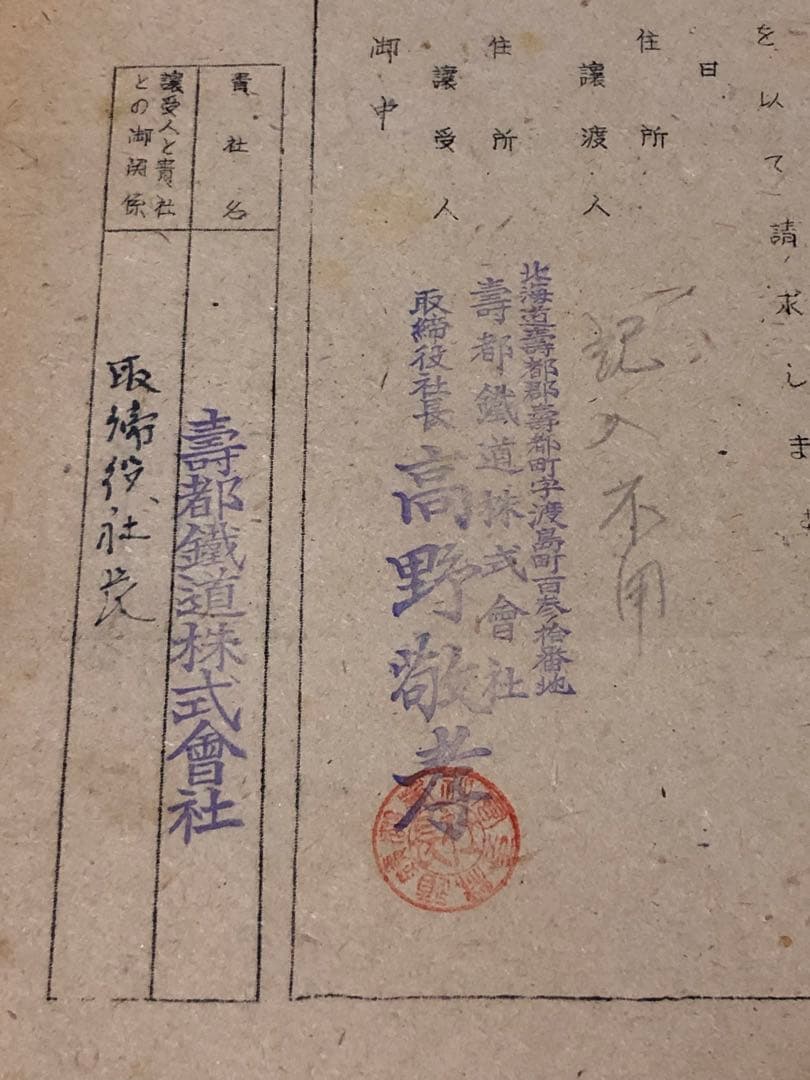 を以て請求しま
日
住所
譲渡人
記入不用
住所
北海道壽都郡壽都町字渡島町百参拾番地
壽都鐵道株式會社
譲受人
取締役社長 高野敬孝
御中
貴社名
壽都鐵道株式會社
譲受人と貴社
との御関係
取締役社長